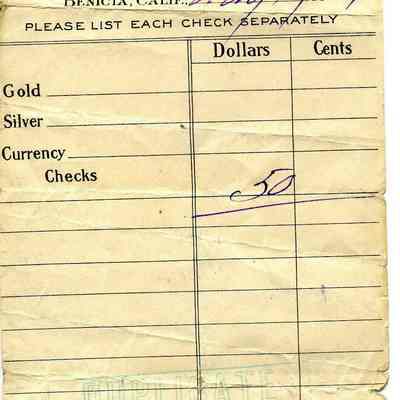 BENICIA, CALIF.,
PLEASE LIST EACH CHECK SEPARATELY
Dollars Cents
Gold
Silver
Currency
Checks 50
DUPLICATE